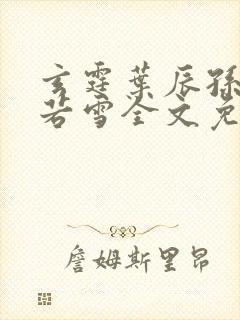 玄霆葉辰孫
若雪全文免
詹姆斯里昂